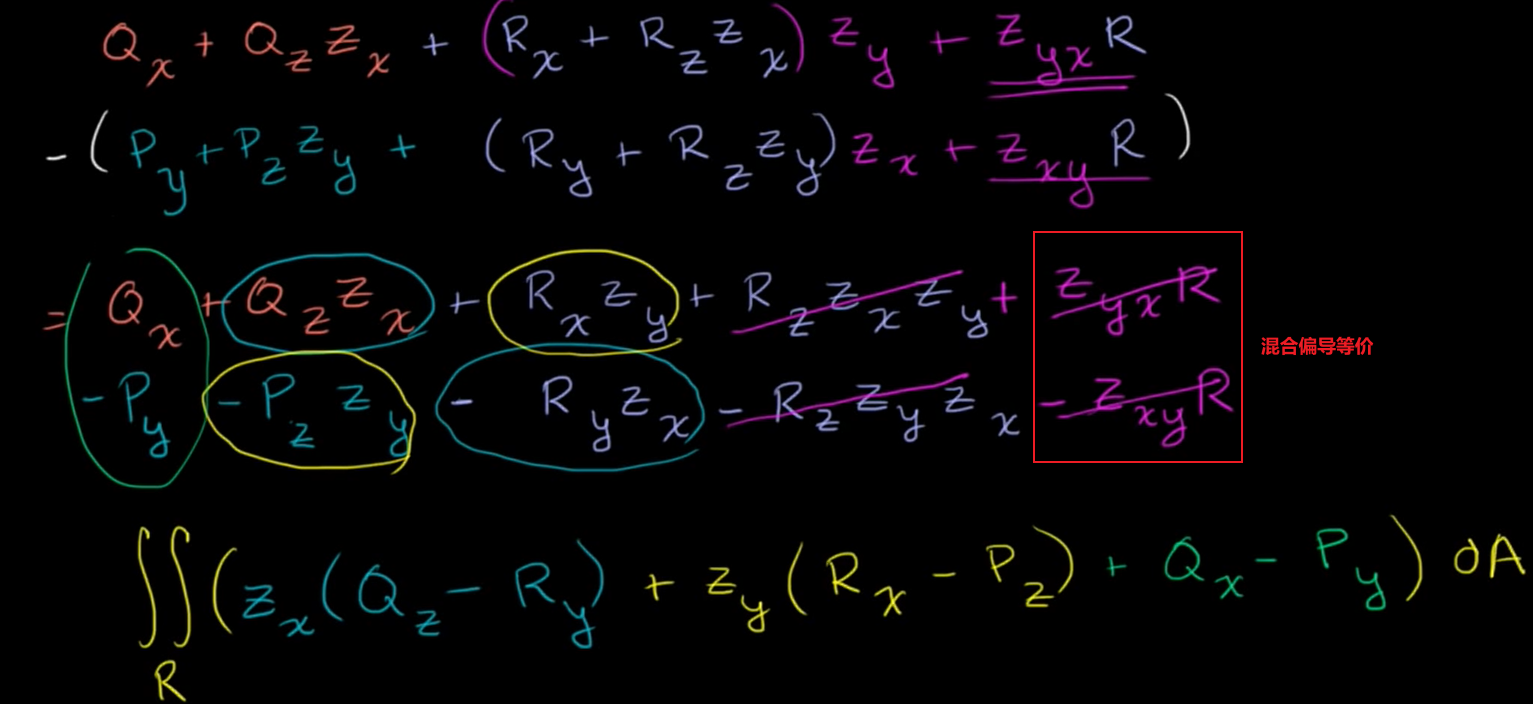 Q_x + Q_z z_x + (R_x + R_z z_x) z_y + z_yx R
- (P_y + P_z z_y + (R_y + R_z z_y) z_x + z_xy R)
= Q_x + Q_z z_x + R_x z_y + R_z z_x z_y + z_yx R
混合偏导等价
- P_y - P_z z_y - R_y z_x - R_z z_y z_x - z_xy R
∬_R (z_x (Q_z - R_y) + z_y (R_x - P_z) + Q_x - P_y) dA